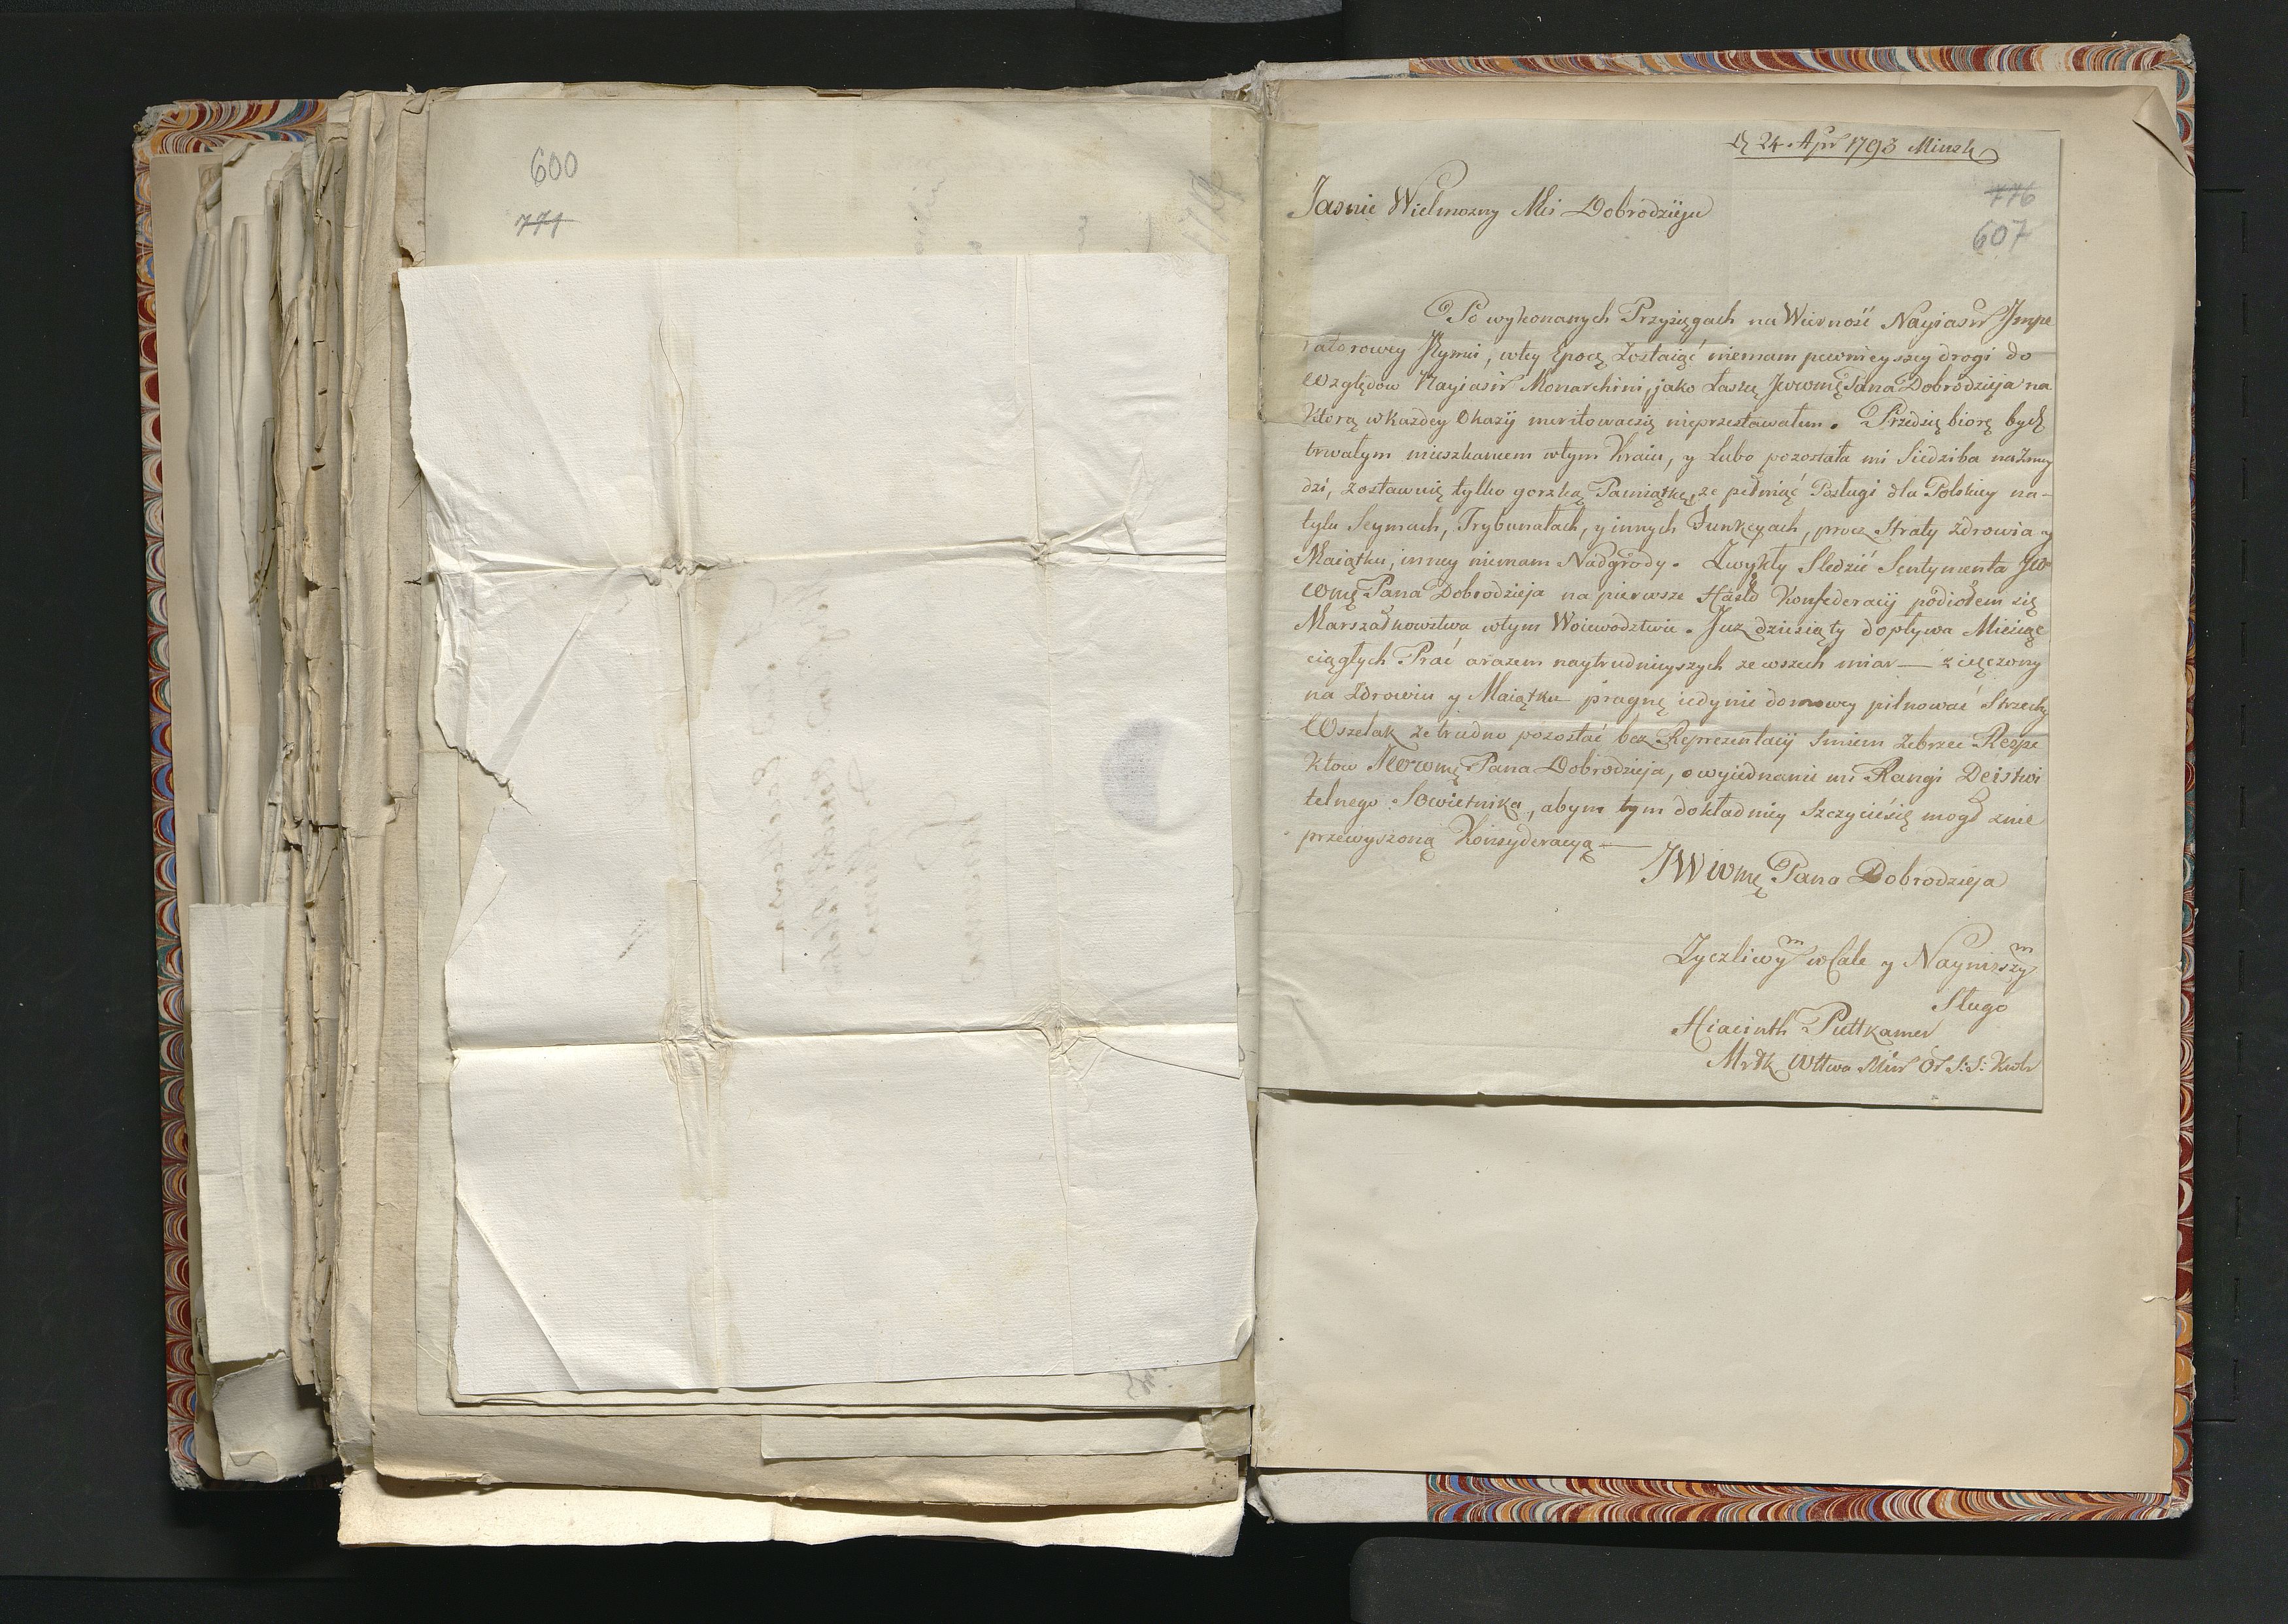 600
771
D 24 Apr 1793 Minsk
776
607
Jasnie Wielmozny Mci Dobrodzieju
Po wykonanych Przysięgach na Wierność Nayiasn Impe
ratorowey Jeymci, wtey Epocę Zostaiąć niemam pewnieyszey drogi do
Względow Nayiasn Monarchini, jako Łaskę Jwwmę Pana Dobrodzieja na
Ktorą wkazdey Okazij meritowacsię nieprzestawałem. Przedsię biorę bydź
trwałym mieszkancem wtym Kraiu, y Lubo pozostała mi Siedziba na Zmuy
dzi, zostawuię tylko gorzką Pamiątkę, ze pełniąć Posługi dla Polskiey na-
tylu Seymach, Trybunałach, y innych Funkcyach, procz Straty Zdrowia y
Maiątku, inney niemam Nadgrody. Zwykły Sledzić Sentymenta Jw
wmę Pana Dobrodzieja na pierwsze Hasło Konfederacij podiołem się
Marszałkowstwa wtym Woiewodztwie. Juz dziesiąty dopływa Miesiąc
ciągłych Prac arazem naytrudnieyszych ze wszech miar — zięczony
na Zdrowiu y Maiątku pragnę iedynie domowey pilnować Strzechy
Wszelak ze trudno pozostać bez Reprezentacij Smiem Zebrzec Respe
ktow Jwwmę Pana Dobrodzieja, o wyiednanie mi Rangi Deistwi
telnego Sowietnika, abym tym dokładniey Szczyciċsię mogł znie
przewyszoną Konsyderacyą —
JWWmę Pana Dobrodzieja
Zyczliwym wCale y Nayniższym
Sługo
Hiacinth Puttkamer
Mrłk Wttwa Min Or S: S: Kwlr